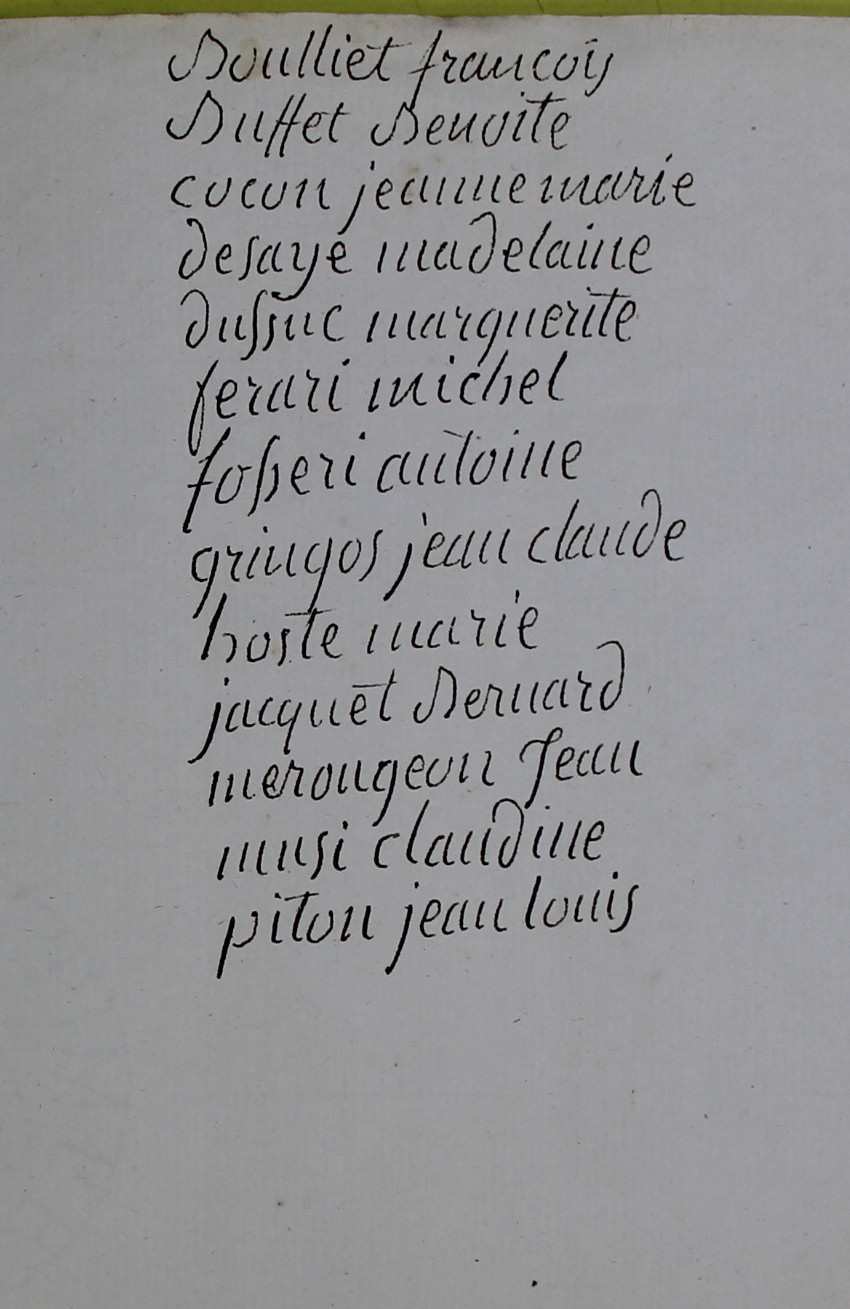 Boulliet francois
Buffet Benoite
cocon jeanne marie
desaye madelaine
dussuc marguerite
ferari michel
fosseri antoine
gringos jean claude
hoste marie
jacquet Bernard
merougeon Jean
musi claudine
piton jean louis